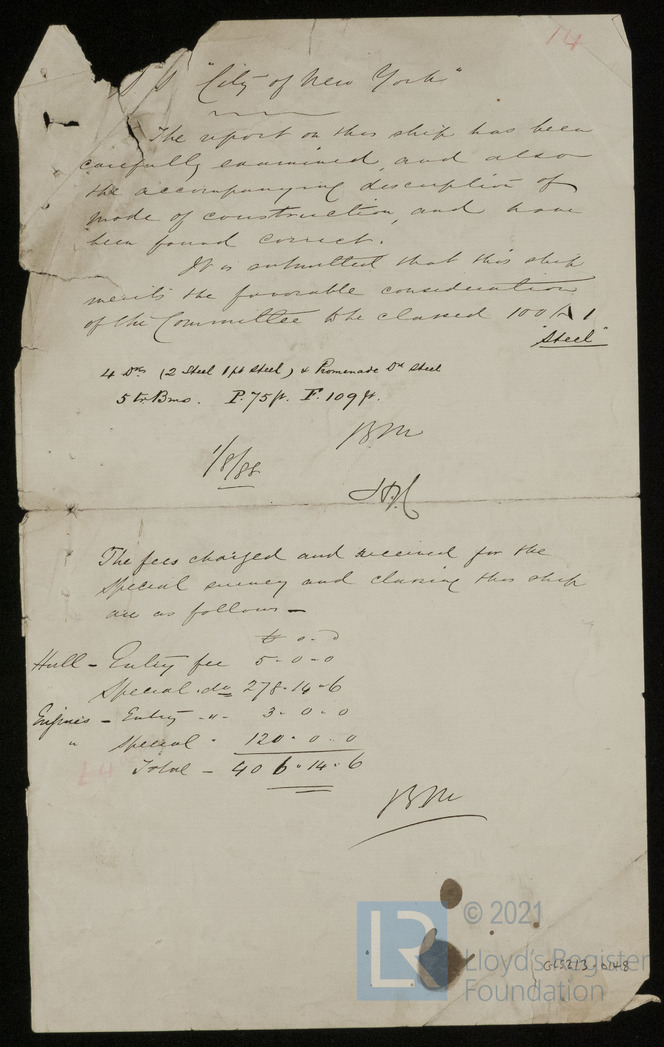 14
S S "City of New York"
The report on this ship has been
carefully examined, and also
the accompanying description of
mode of construction, and have
been found correct.
It is submitted that this ship
merits the favorable consideration
of the Committee to be classed 100 A 1
"Steel"
4 Dks (2 Steel 1 pt Steel) & Promenade Dk Steel
5 tr Bms. P. 75 ft. F. 109 ft.
1/8/88
The fees charged and received for the
Special survey and classing this ship
are as follows —
Hull - Entry fee 5 - 0 - 0
Special . do 278 - 14 - 6
Engines - Entry - " - 3 - 0 - 0
" Special " 120 - 0 - 0
Total - 406 - 14 - 6
© 2021
LR
Lloyd's Register
Foundation